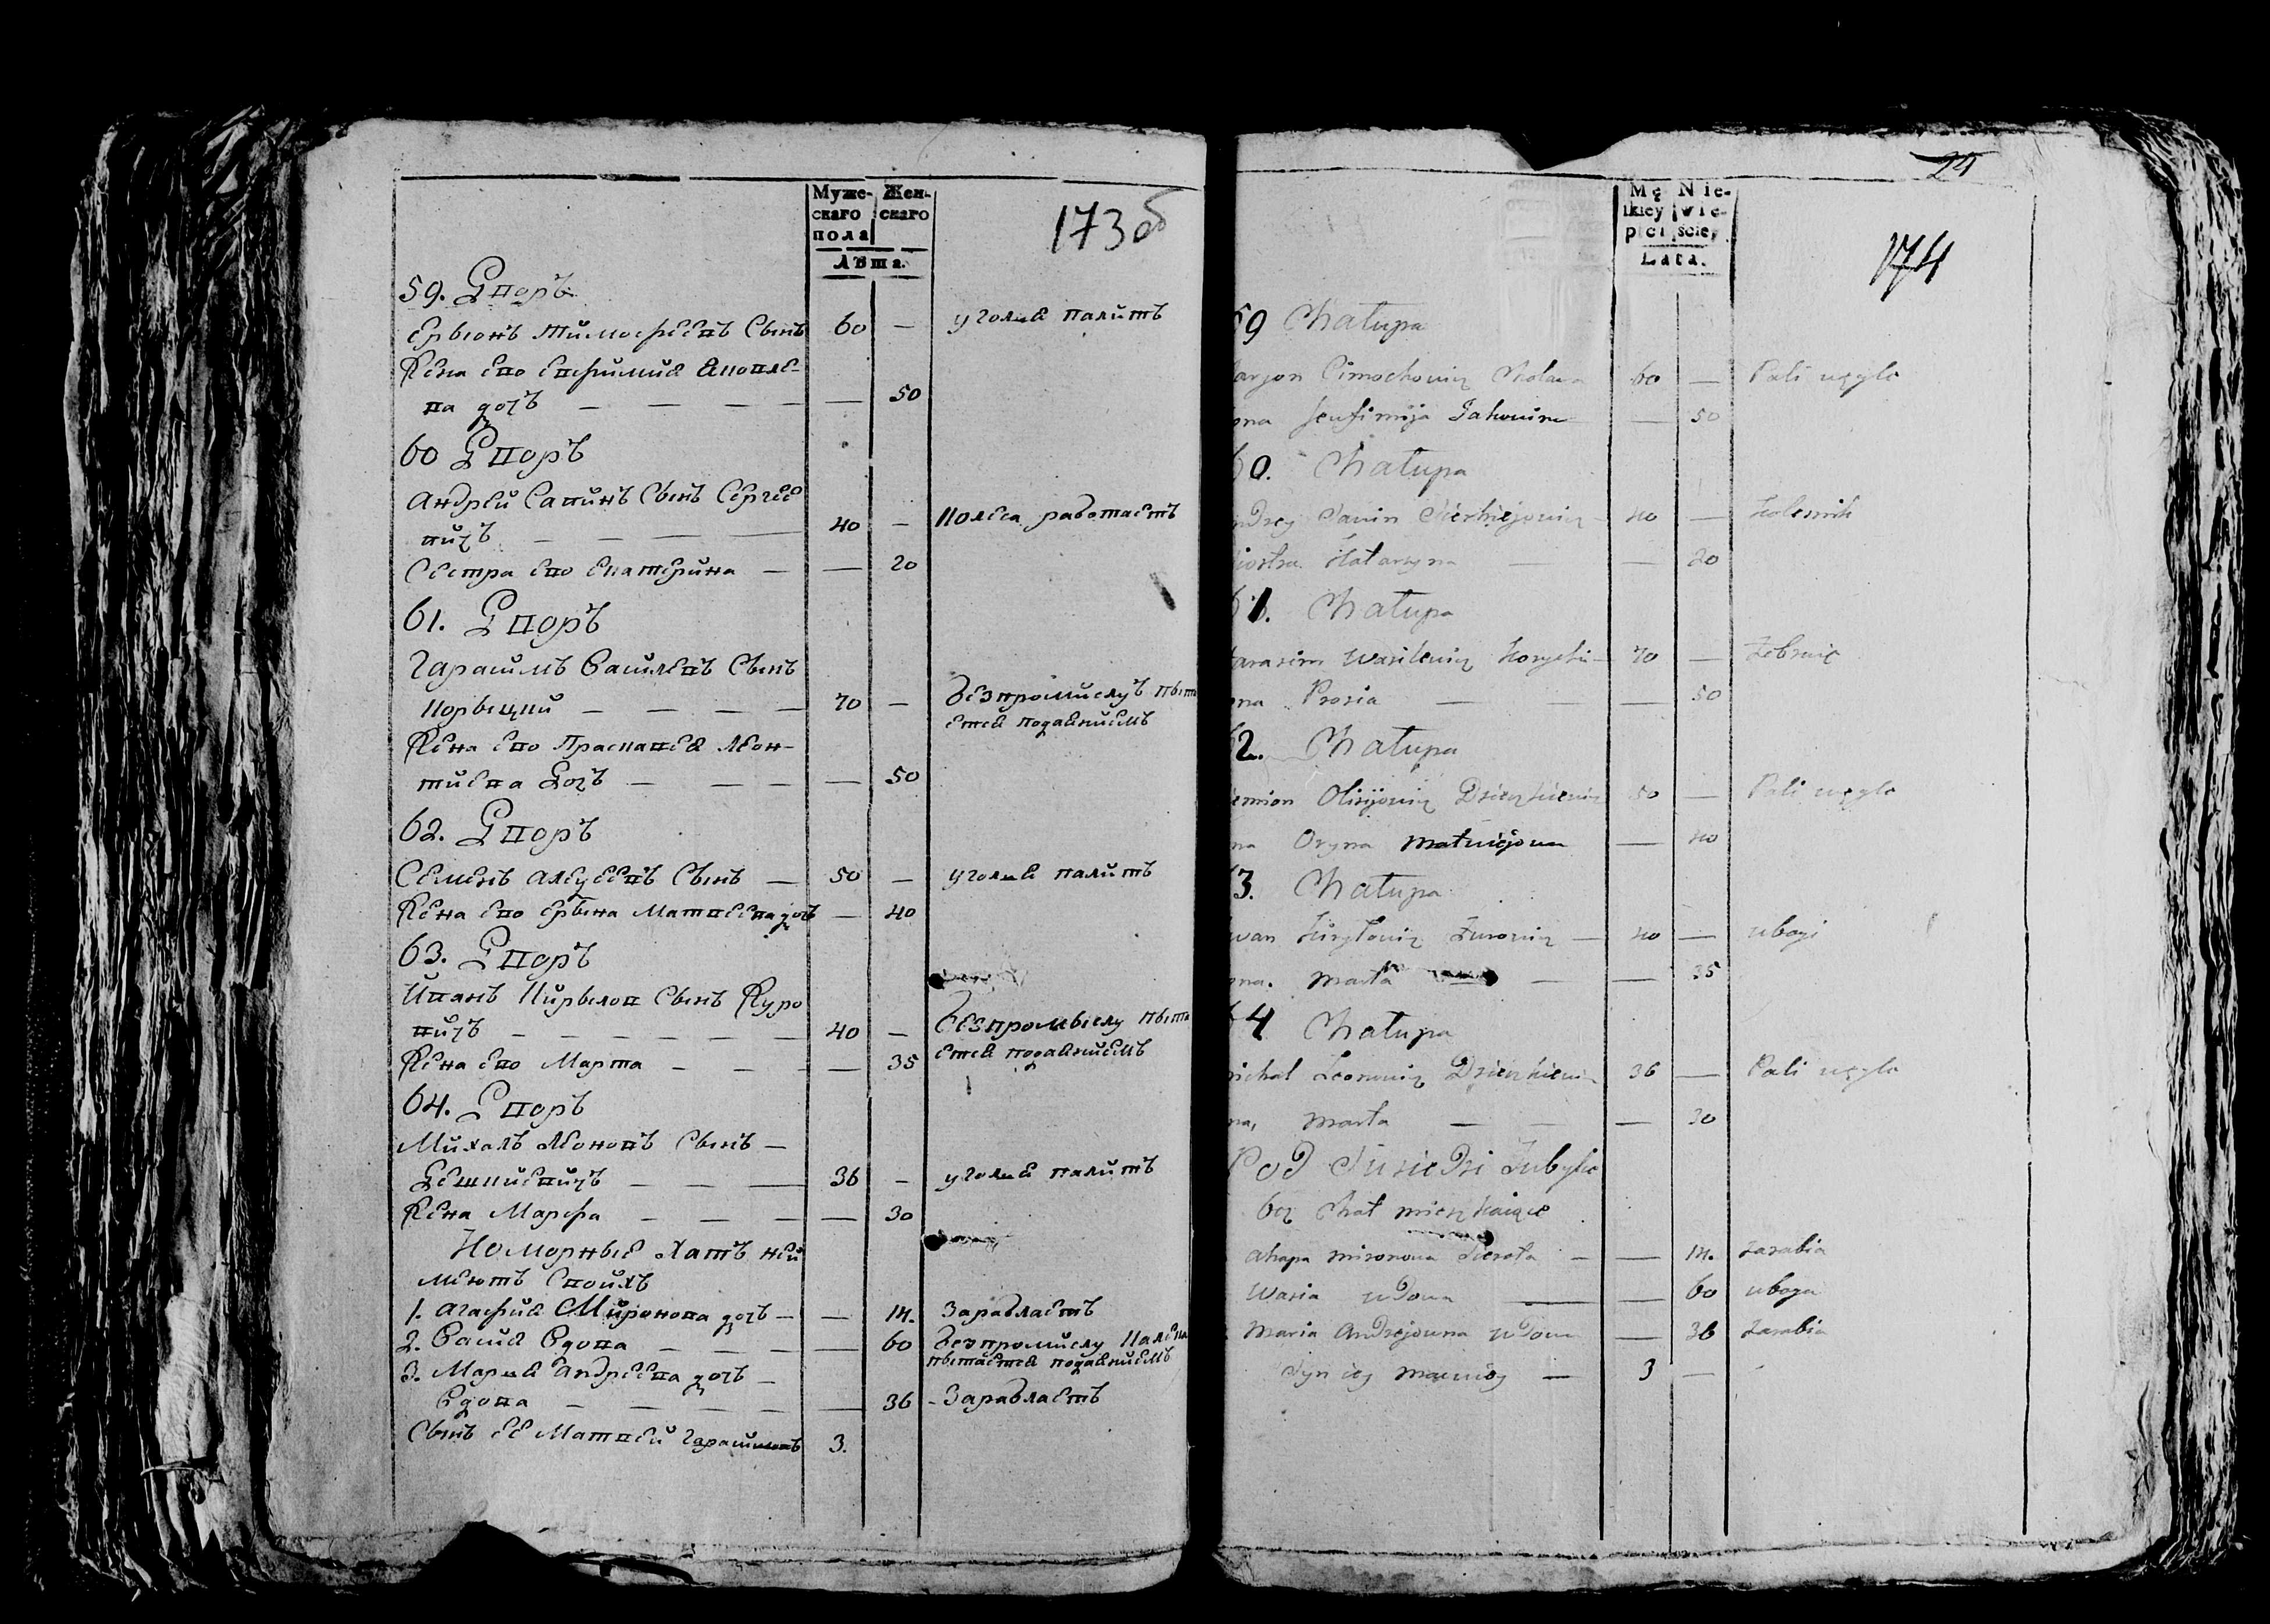 Муже-
скаго
пола
Жен-
скаго
Лѣта.
173 об
59. Дворъ
Ерыонъ Тимофеевъ Сынъ 60 — уголья палитъ
Жена его Евфимия Яковле-
ва дочъ — — — — — 50
60 Дворъ
Андрей Савинъ Сынъ Сергее
вичъ — — — — 40 — Колеса работаетъ
Сестра его Екатерина — — 20
61. Дворъ
Гарасимъ Василевъ Сынъ
Корыцкий — — — — 70 — безпромислуъ пыта
ется подаяниемъ
Жена его Прасковея Леон-
тиева Дочъ — — — — 50
62. Дворъ
Семенъ Алеусевъ Сынъ — 50 — уголья палитъ
Жена его Ерына Матвеева дочъ — 40
63. Дворъ
Иванъ Кирылов Сынъ Журо
вичъ — — — — — — 40 — безпромыслу пыта
ется подаяниемъ
Жена его Марта — — — — 35
64. Дворъ
Михалъ Леоновъ Сынъ —
Дешкиевичъ — — — 36 — уголья палитъ
Жена Марфа — — — — 30
Коморные Хатъ неи
меютъ Своихъ
1. Агафия Миронова дочъ — — 14. Заравляетъ
2. Васия Вдова — — — — 60 безпромислу
пытается подаяниемъ
3. Марья Андреева дочъ —
Вдова — — — — — 36 - Заравляетъ
Сынъ ее Матвей Гарасимовъ 3.
24
174
Mę
skiey
płci
Nie-
wie-
sciey
Lata.
59 Chałupa
arjon Cimochowicz 60 — Pali węgle
ona Jeufimija Jakowina — 50
60. Chałupa
ndrey Sawin Sierhiejowicz — 40 — Kolesnik
iostra Katarzyna — — 20
61. Chałupa
arasim Wasilewicz Korycki — 70 — żebruic
ona Prosia — — — 50
62. Chałupa
emion Olisijowicz Dzieszkiewicz 50 — Pali węgle
na Oryna Matwiejowa — 40
63. Chałupa
wan Kiryłowicz Żurowicz — 40 — ubogi
ona. Marta — — 35
64 Chałupa
ichał Leonowicz Dzieszkiewicz 36 — Pali węgle
na, Marta — — — 30
Pod Susiedzi Ludzie
bez Chat mieszkaiące
Ahapa Mironowa Sierota — — 14. zarabia
Wasia wdowa — — 60 uboga
Maria Andrejowna wdowa — 36 zarabia
Syn iey Maciey — 3 —